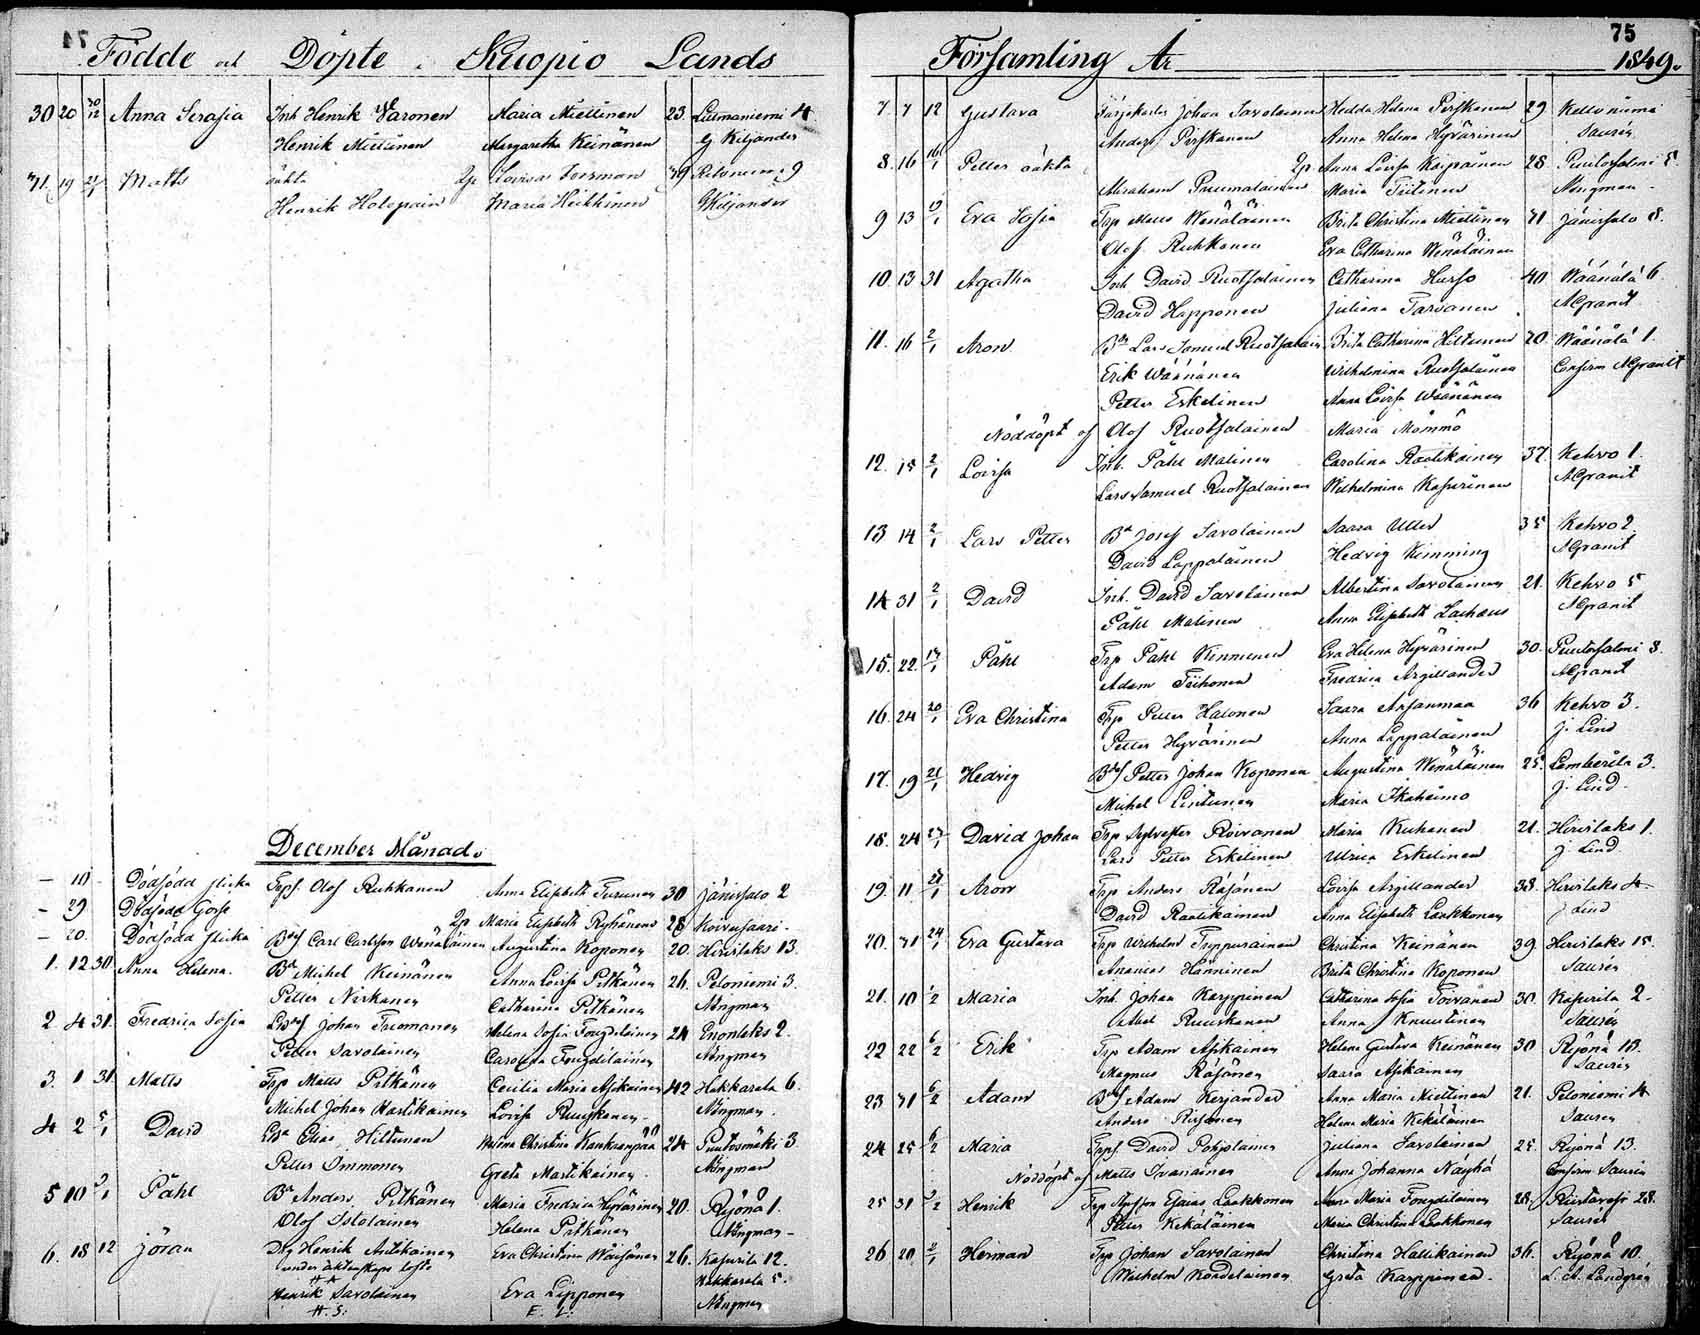 74
Födde och Döpte i Kuopio Lands
30 20 30/12 Anna Serafia Inh Henrik Varonen Maria Miettinen 23. 4
Henrik Miettinen Margaretha Keinänen G Kiljander
31. 19 21/1 Matts oäkta 2p Lovisa 39 9
Henrik Maria Heikkinen G Kiljander
December Månad.
— 10 — Dödfödd flicka Trpf. Olof Ruhkanen Anna Elisabeth Turunen 30 Jänissalo 2
— 29 Dödfödd Gosse 2p Maria Elisabeth Ryhänen 28 Koivusaari -
— 20. Dödfödd flicka Bdsf Carl Carlsson Wänäläinen Augustina Koponen 20. Hirvilaks 13.
1. 12 30. Anna Helena. Bd Michel Keinänen Anna Lovisa Pitkänen 26. Peloniemi 3.
Petter Niskanen Catharina Pitkänen Nöngman
2 4 31. Fredrica Sofia Bdsf Johan Tuomanen Helena Sofia 24 Enonlaks 2.
Petter Savolainen Carolina Nöngman
3. 1 31. Matts Trp Matts Pitkänen Cecilia Maria Asikainen 42 Hakkarala 6.
Michel Johan Martikainen Lovisa Ruuskanen Nöngman.
4 2 5/1 David Bd Elias Hiltunen Christina Kankaanpää 24 Puutosmäki 3
Petter Immonen Greta Martikainen Nöngman
5 10 9/1 Påhl Bd Anders Pitkänen Maria Fredrica Hyvärinen 20. Ryönä 1.
Olof Istolainen Helena Pitkänen Nöngman
6. 18 12 Jöran Dlg Henrik Antikainen Eva Christina Wäisänen 26. Kasurila 12.
under äktenskaps löfte Hakkarala 5.
Henrik Savolainen Eva Lipponen Nöngman
H. S: E. L:
75
Församling År 1849.
7. 7 12 Gustava Johan Savolainen Hedda Helena Pirskanen 29 Kellоniemi
Anders Pirskanen Anna Helena Hyvärinen Saurén
8. 16 16/1 Petter oäkta 2p Anna Lovisa Karpainen 28 Puutossalmi 5.
Abraham Puumalainen Maria Tiitinen Nöngman
9 13 19/1 Eva Sofia Trp Matts Wenäläinen Brita Christina Miettinen 41 Jänissalo 8.
Olof Ruhkanen Eva Catharina Wenäläinen
10. 13 31 Agatha Inh David Ruotsalainen Catharina Husso 40 Wäänälä 6
David Happonen Juliana Tarvainen AGranit
11. 16 2/1 Aron Bdn Lars Samuel Ruotsalain Brita Catharina Hiltunen 20. Wäänälä 1.
Erik Wäänänen Wilhelmina Ruotsalainen Confirm AGranit
Petter Eskelinen Anna Lovisa Wäänänen
Nöddöpt af Olof Ruotsalainen Maria Mömmö
12. 15 2/1 Lovisa Inh. Påhl Malinen Carolina Raatikainen 37. Kehvo 1.
Lars Samuel Ruotsalainen Wilhelmina Kasurinen AGranit
13 14 2/1 Lars Petter Bd Josef Savolainen Saara Utter 35 Kehvo 2.
David Lappalainen Hedvig Kimming AGranit
14 31 2/1 David Inh. David Savolainen Albertina Savolainen 21. Kehvo 5
Påhl Malinen Anna Elisabeth AGranit
15. 22. 14/1 Påhl Trp Påhl Kinnunen Eva Helena Hyvärinen 30. Puutossalmi 3.
Adam Tiihonen Fredrica Argillander AGranit
16. 24 20/1 Eva Christina Trp Petter Halonen Saara Ansamaa 36 Kehvo 3.
Petter Hyvärinen Anna Lappalainen J. Lind
17. 19 21/1 Hedvig Bdsf Petter Johan Koponen Augustina Wenäläinen 25. Lamberila 3.
Michel Lintunen Maria Ikäheimo J. Lind.
18. 24 David Johan Trp Sylvester Roivanen Maria Kuhanen 21. Hirvilaks 1.
Lars Petter Eskelinen Ulrica Eskelinen J. Lind
19. 11 Aron Trp Anders Räsänen Lovisa Argillander 38. Hirvilaks 4-
David Raatikainen Anna Elisabeth Laakkonen J Lind
20. 31 24/1 Eva Gustava Trp Wilhelm Tryppurainen Christina Keinänen 39 Hirvilaks 15.
Ananias Hänninen Brita Christina Koponen Saurén
21. 10 1/2 Maria Inh. Johan Karppinen Catharina Sofia Toivanen 30. Kasurila 2-
Abel Ruuskanen Anna Knuutinen Saurén
22 22 6/2 Erik Trp Adam Asikainen Helena Gustava Keinänen 30 Ryönä 13.
Magnus Räsänen Saara Asikainen Saurén
23 31 6/2 Adam Bdsf Adam Kerjander Anna Maria Miettinen 21. Peloniemi 4
Anders Rissanen Helena Maria Kekäläinen Saurén
24 25 6/2 Maria Trpf. David Pohjolainen Juliana Savolainen 25. Ryönä 13.
Nöddöpt af Matts Ivanainen Anna Johanna Näyhä Confirm Saurén
25 31 5/2 Henrik Trp Esaias Laakkonen Anna Maria 28. Riistavesi 28.
Petter Kekäläinen Maria Christina Laakkonen Saurén
26 20 2/1 Herman Trp Johan Savolainen Christina Hallikainen 36. Ryönä 10.
Wilhelm Kondelainen Greta Karppanen. L. A. Landgrén